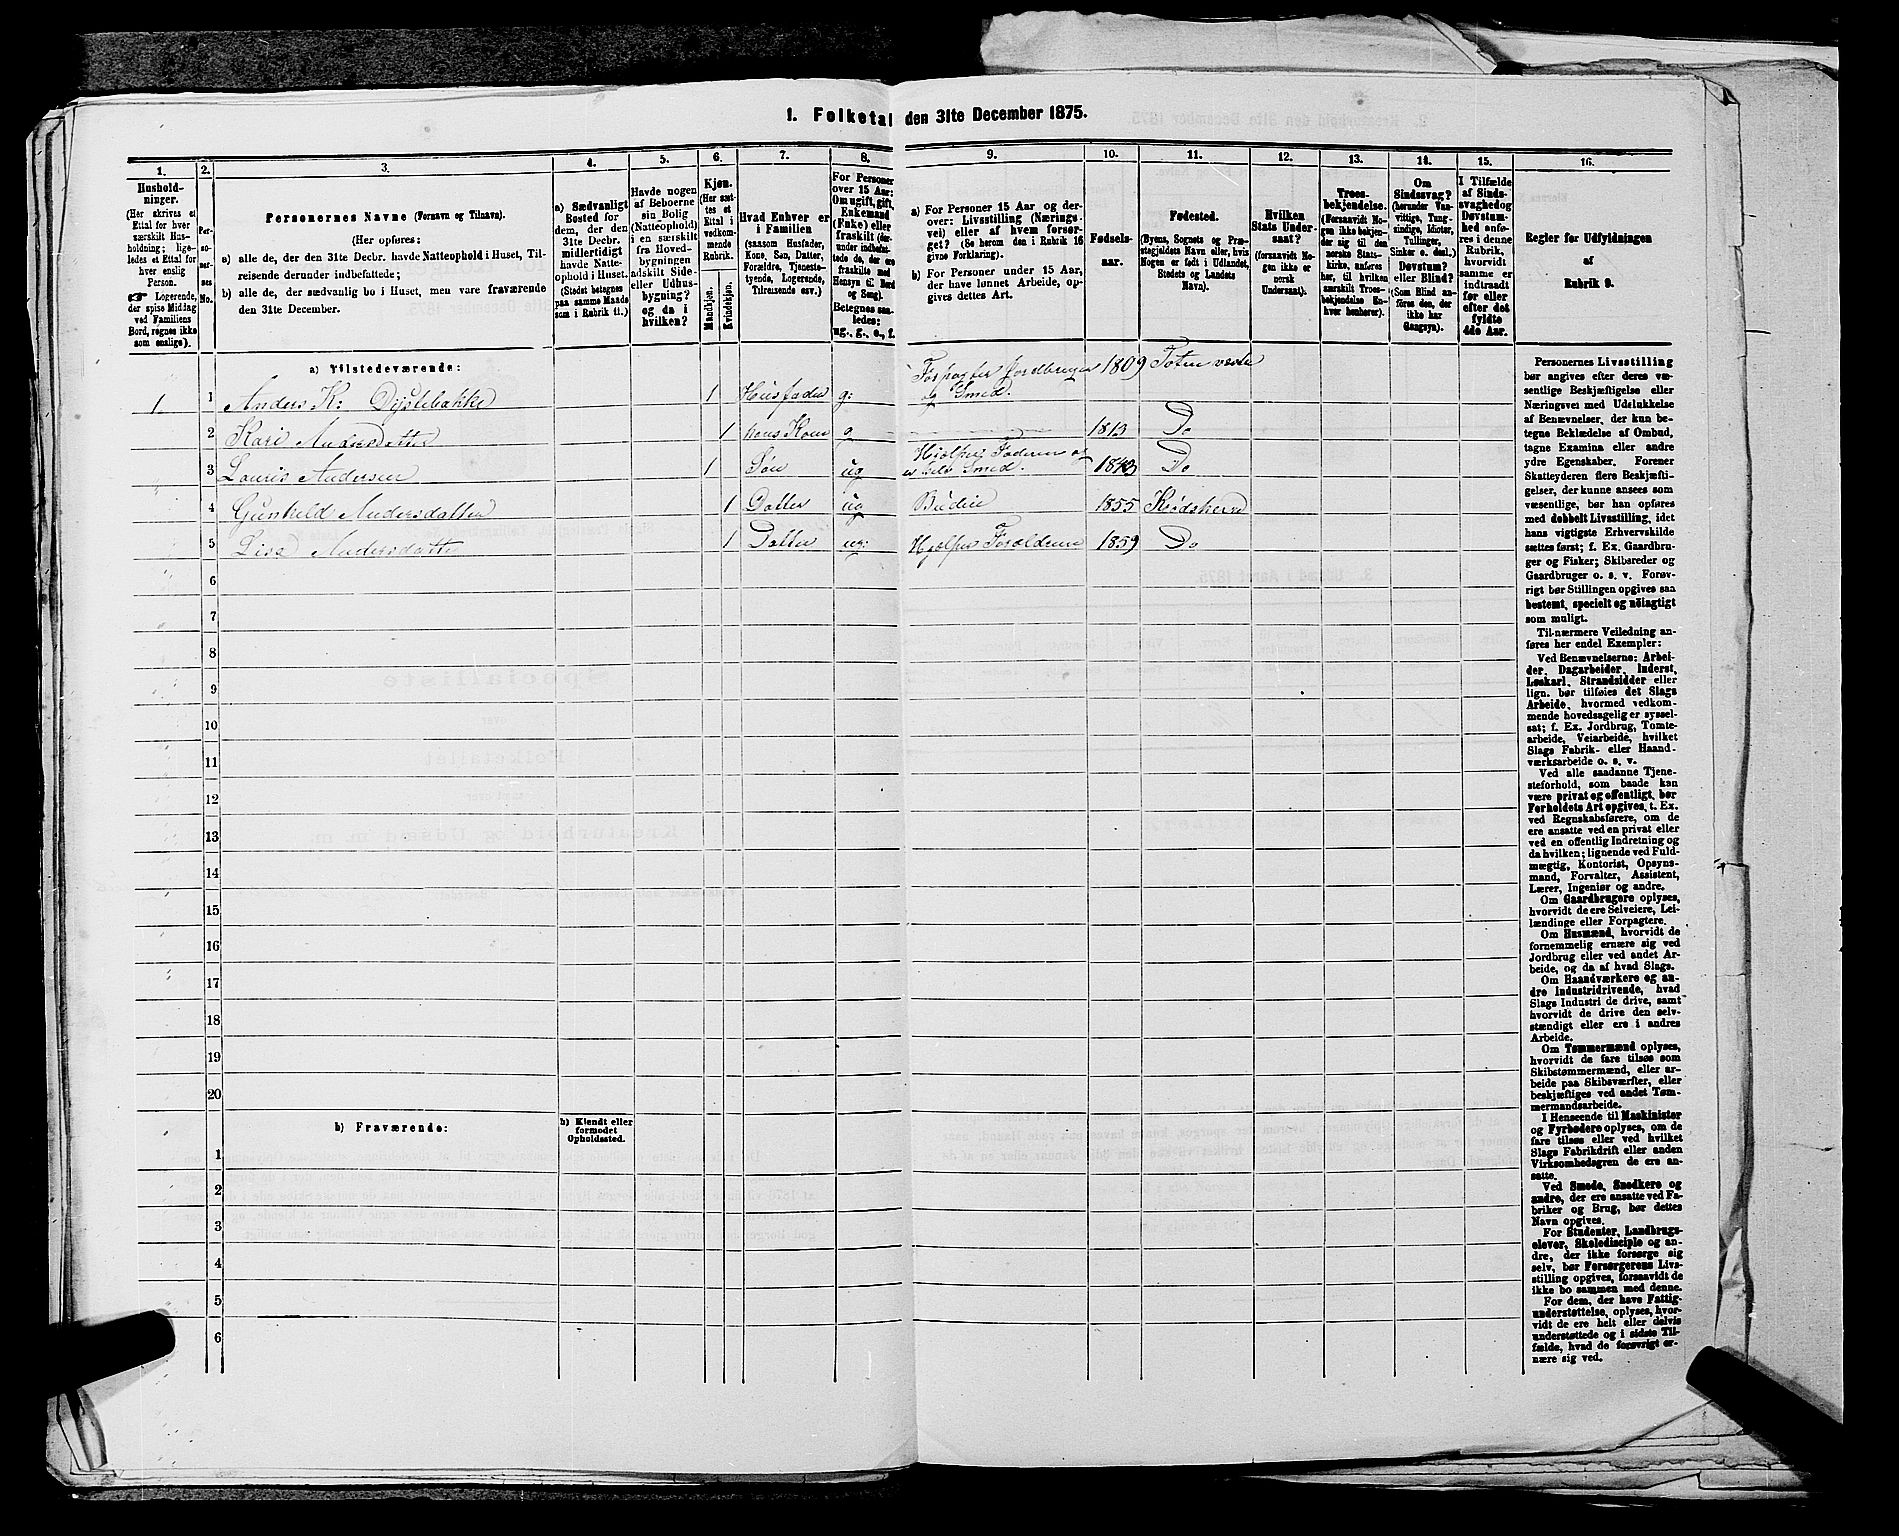 1. Folketal den 31te December 1875.
1. 2. 3. 4. 5. 6. 7. 8. 9. 10. 11. 12. 13. 14. 15. 16.
Hushold-
ninger.
(Her skrives et
Ettal for hver
særskilt Hus-
holdning; lige-
ledes et Ettal for
hver enslig
Person.
☞ Logerende,
der spise Middag
ved Familiens
Bord, regnes ikke
som enslige).
Per-
so-
ner-
nes
No.
Personernes Navne (Fornavn og Tilnavn).
(Her opføres:
a) alle de, der den 31te Decbr. havde Natteophold i Huset, Til-
reisende derunder indbefattede;
b) alle de, der sædvanlig bo i Huset, men vare fraværende
den 31te December.
a) Sædvanligt
Bosted for
dem, der den
31te Decbr.
midlertidigt
havde Natte-
ophold i Huset.
(Stedet betegnes
paa samme Maade
som i Rubrik 11.)
Havde nogen
af Beboerne
sin Bolig
(Natteophold)
i en særskilt
fra Hoved-
bygningen
adskilt Side-
eller Udhus-
bygning?
og da i
hvilken?
Kjøn.
(Her sæt-
tes et
Ettal i
vedkom-
mende
Rubrik.
Mandkjøn.
Kvindekjøn.
Hvad Enhver er
i Familien
(saasom Husfader,
Kone, Søn, Datter,
Forældre, Tjeneste-
tyende, Logerende,
Tilreisende osv.)
For Personer
over 15 Aar:
Om ugift, gift,
Enkemand
(Enke) eller
fraskilt (der-
under indbefat-
tede de, der ere
fraskilte med
Hensyn til Bord
og Seng).
Betegnes saa-
ledes:
ug., g., e., f.
a) For Personer 15 Aar og der-
over: Livsstilling (Nærings-
vei) eller af hvem forsør-
get? (Se herom den i Rubrik 16
givne Forklaring).
b) For Personer under 15 Aar,
der have lønnet Arbeide, op-
gives dettes Art.
Fødsels-
aar.
Fødested.
(Byens, Sognets og Præ-
stegjeldets Navn eller, hvis
Nogen er født i Udlandet,
Stedets og Landets
Navn).
Hvilken
Stats Under-
saat?
(forsaavidt No-
gen ikke er
norsk
Undersaat).
Troes-
bekjendelse.
(Forsaavidt No-
gen ikke bekjen-
der sig til den
norske Stats-
kirke, anføres
her, til hvilken
særskilt Troes-
bekjendelse En-
hver henhører).
Om
Sindssvag?
(herunder Van-
vittige, Tung-
sindige, Idioter,
Tullinger,
Sinker o. desl.)
Døvstum?
eller Blind?
(Som Blind an-
føres den, der
ikke har
Gangsyn).
I Tilfælde
af Sinds-
svaghed og
Døvstum-
hed anfø-
res i denne
Rubrik,
hvorvidt
samme er
indtraadt
før eller
efter det
fyldte
4de Aar.
Regler for Udfyldningen
af
Rubrik 9.
a) Tilstedeværende:
1 1 Anders K: Dystebakke 1 Husfader g: Forpagter Jordbruger og Smed. 1809 Toten vestre
2 Kari Andersdatter 1 hans Kone g 1813 Do
3 Lauris Andersen 1 Søn ug Hjelper Faderen og Smed. Do
4 Gunhild Andersdatter 1 Datter ug Budeie 1855 Krødsherred
5 Lisa Andersdatter 1 Datter ug: Hjelper Forældrene 1859 Do
6
7
8
9
10
11
12
13
14
15
16
17
18
19
20
b) Fraværende:
b) Kjendt eller
formodet
Opholdssted.
1
2
3
4
5
6
Personernes Livsstilling
bør angives efter deres væ-
sentlige Beskjæftigelse eller
Næringsvei med Udelukkelse
af Benævnelser, der kun be-
tegne Beklædelse af Ombud,
tagne Examina eller andre
ydre Egenskaber. Forener
Skatteyderen flere Beskjæfti-
gelser, der kunne ansees som
væsentlige, bør han opføres
med dobbelt Livsstilling, idet
hans vigtigste Erhvervskilde
sættes først; f. Ex. Gaardbru-
ger og Fisker; Skibsreder og
Gaardbruger o. s. v. Forøv-
rigt bør Stillingen opgives saa
bestemt, specielt og nöiagtigt
som muligt.
Til nærmere Veiledning an-
føres her endel Exempler:
Ved Benævnelserne: Arbei-
der, Dagarbeider, Inderst,
Løskarl, Strandsidder eller
lign. bør tilføies det Slags
Arbeide, hvormed vedkom-
mende hovedsagelig er syssel-
sat; f. Ex. Jordbrug, Tomte-
arbeide, Veiarbeide, hvilket
Slags Fabrik- eller Haand-
værksarbeide o. s. v.
Ved alle saadanne Tjene-
steforhold, som baade kan
være privat og offentligt, bør
Forholdets Art opgives, t. Ex.
ved Regnskabsførere, om de
ere ansatte ved en privat eller
ved en offentlig Indretning og
da hvilken; lignende ved Fuld-
mægtig, Kontorist, Opsyns-
mand, Forvalter, Assistent,
Lærer, Ingeniør og andre.
Om Gaardbrugere oplyses,
hvorvidt de ere Selveiere, Lei-
lændinge eller Forpagtere.
Om Husmænd, hvorvidt de
fornemmelig ernære sig ved
Jordbrug eller ved andet Ar-
beide, og da af hvad Slags.
Om Haandværkere og an-
dre Industridrivende, hvad
Slags Industri de drive, samt
hvorvidt de drive den selv-
stændigt eller ere i andres
Arbeide.
Om Tømmermænd oplyses,
hvorvidt de fare tilsøs som
Skibstømmermænd, eller ar-
beide paa Skibsværfter, eller
beskjæftiges ved andet Tøm-
mermandsarbeide.
I Henseende til Maskinister
og Fyrbødere oplyses, om de
fare tilsøs eller ved hvilket
Slags Fabrikdrift eller anden
Virksomhedsgren de ere an-
satte.
Ved Smede, Snedkere og
andre, der ere ansatte ved Fa-
briker og Brug, bør dettes
Navn opgives.
For Studenter, Landbrugs-
elever, Skoledisciple og an-
dre, der ikke forsørge sig
selv, bør Forsørgerens Livs-
stilling opgives, forsaavidt de
ikke bo sammen med denne.
For dem, der have Fattig-
understøttelse, oplyses, hvor-
vidt de ere helt eller delvis
understøttede og i sidste Til-
fælde, hvad de forøvrigt er-
nære sig ved.